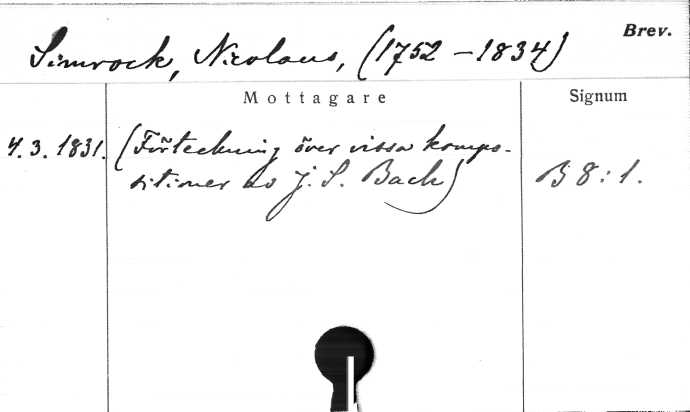 Simrock, Nicolaus, (1752 - 1834) Brev.
Mottagare Signum
4.3.1831. (Förteckning över vissa kompo-
sitioner av J. S. Bach) B 8:1.